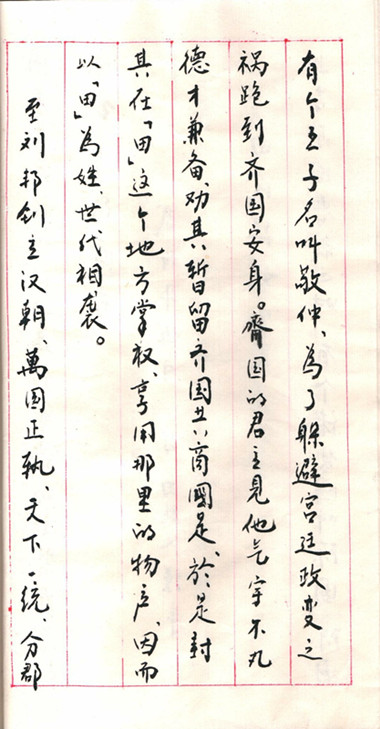 有个王子名叫敬仲、為了躲避宫廷政变之
祸跑到齐国安身。齊国的君主見他气宇不凡
德才兼备、劝其暂留齐国共商國是、於是封
其在「田」这个地方掌权、享用那里的物产、因而
以「田」為姓、世代相袭。
至刘邦创立汉朝、萬國正执、天下一统、分郡